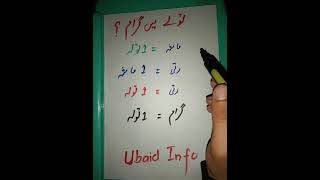 تولے میں گرام ؟
ماشہ = 1 تولہ
رتی = 1 ماشہ
رتی = 1 تولہ
گرام = 1 تولہ
Ubaid Info